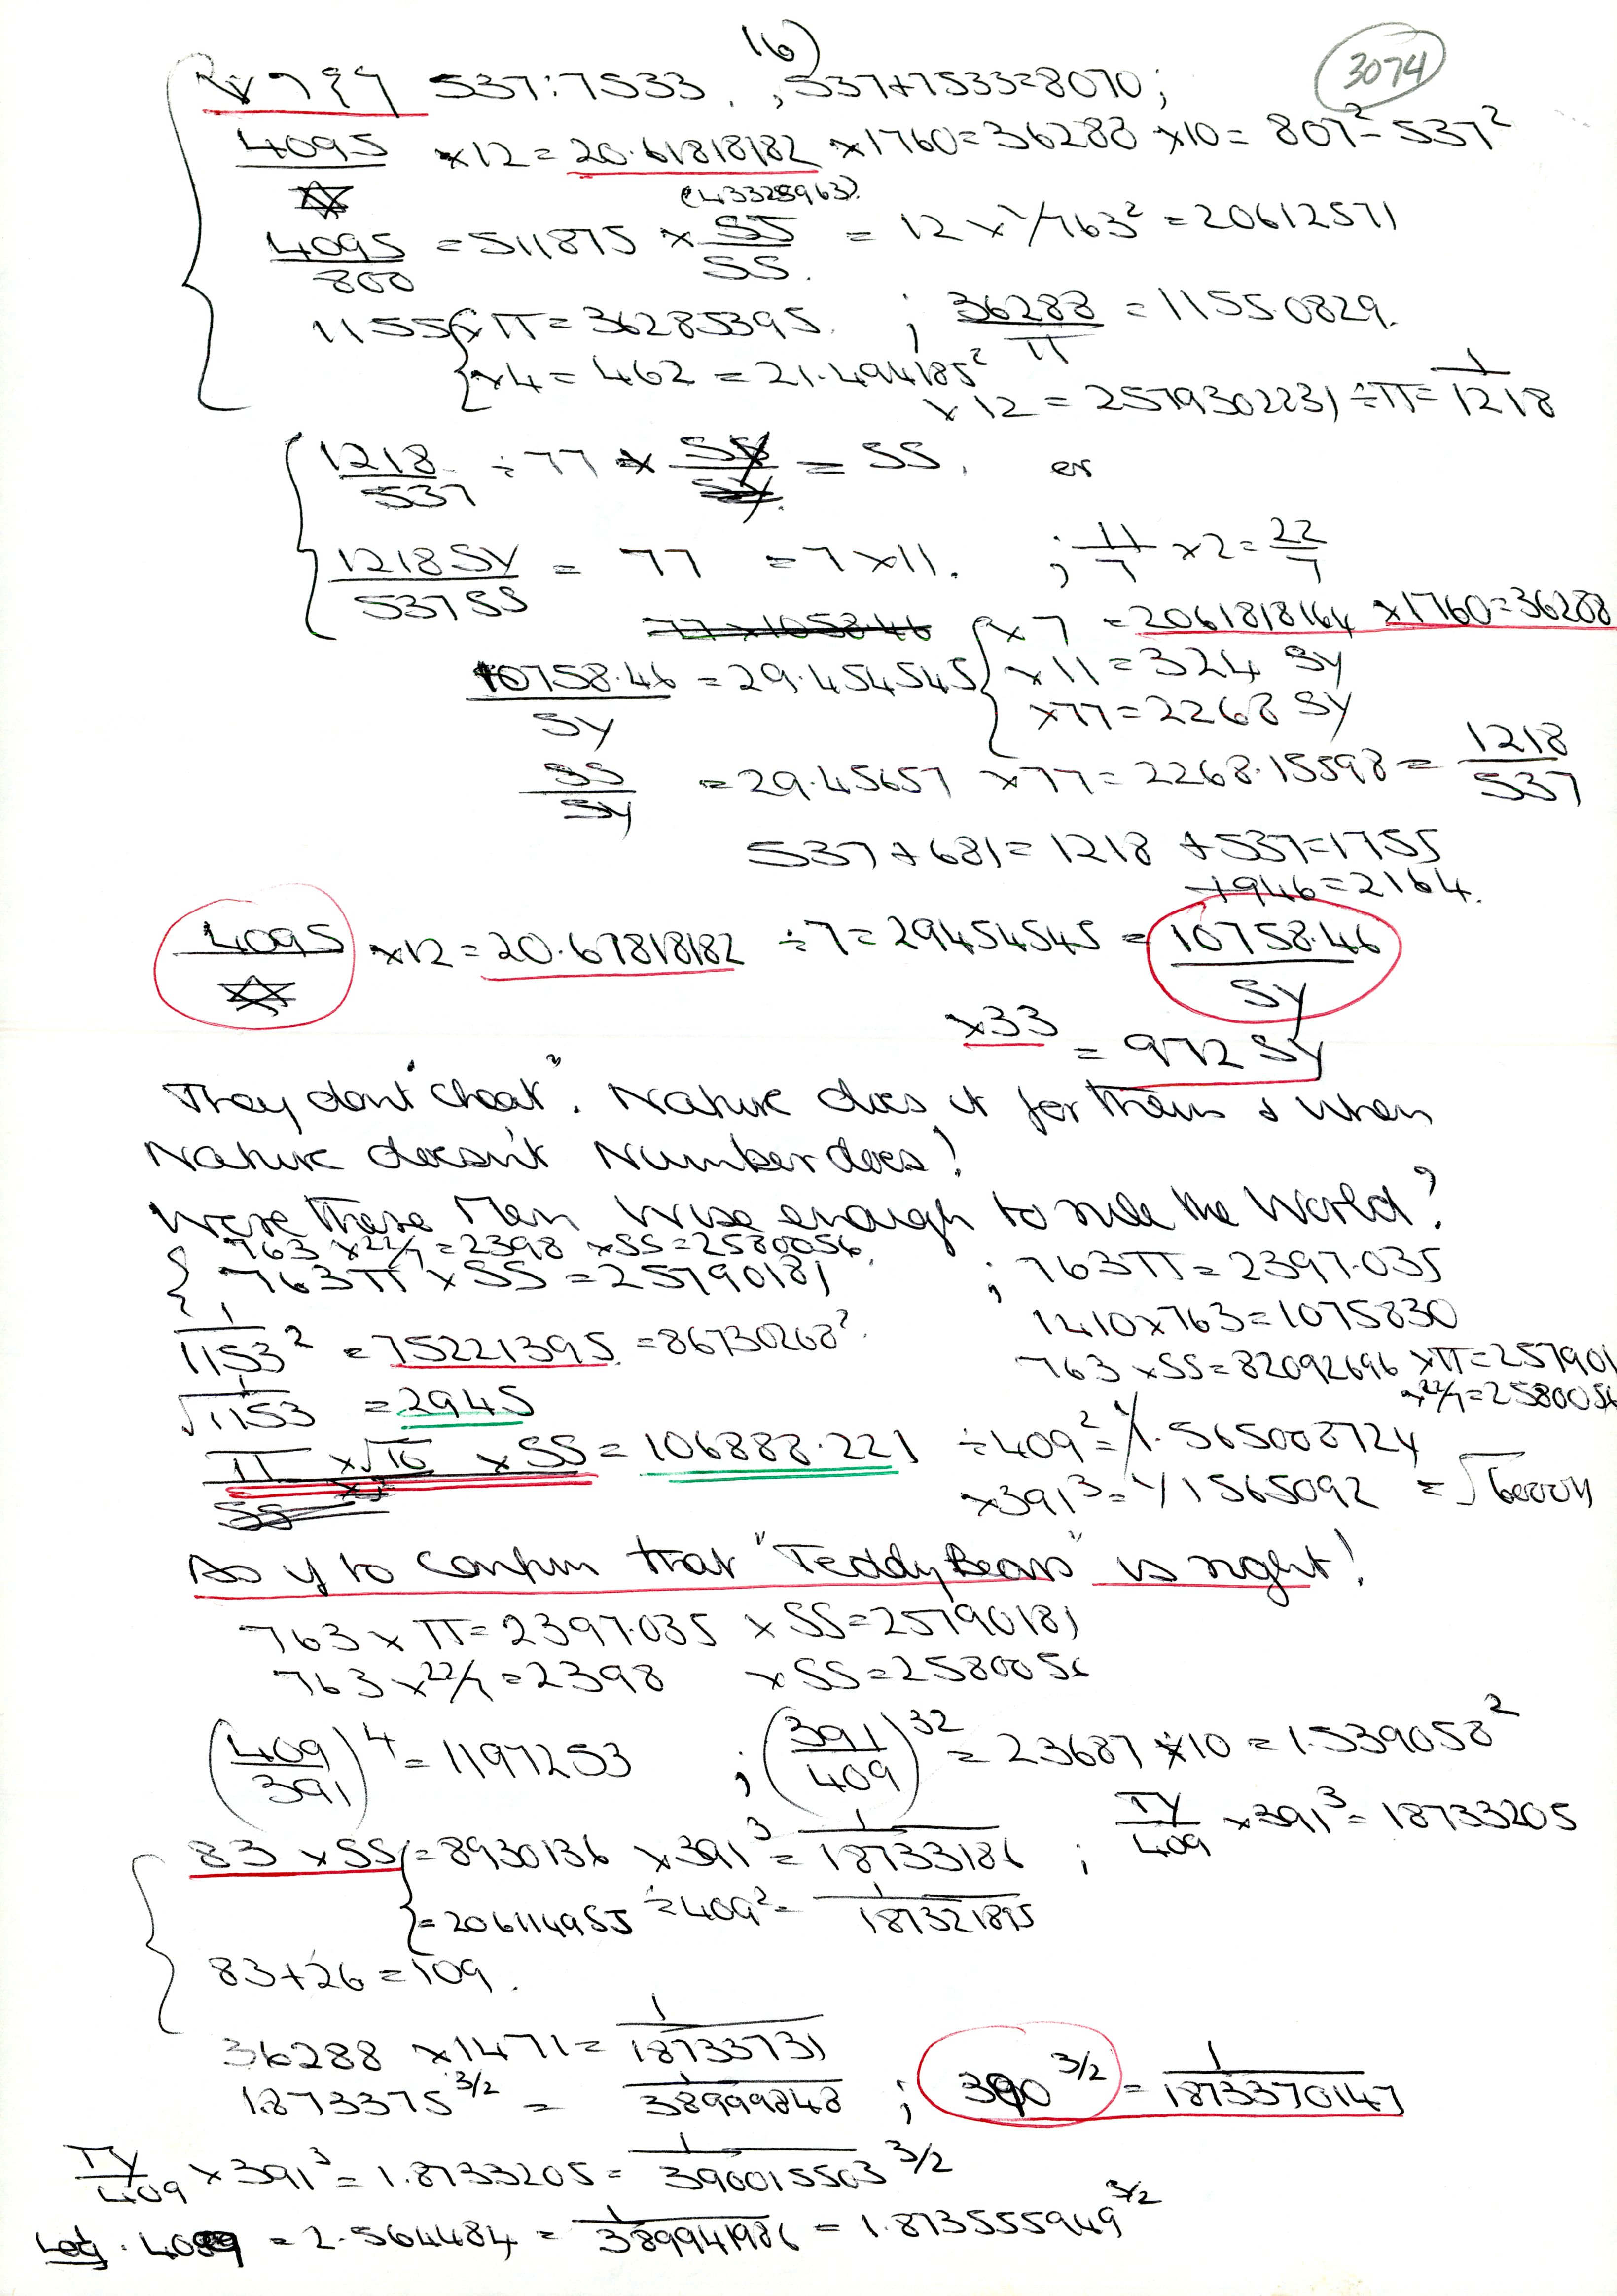 16)
3074
537:7533. , 537+7533=8070;
4095/☆ ×12 = 20.61818182 ×1760=36288 ×10 = 807²-537²
(43328963).
4095/800 = 511875 × SS/SS. = 12 × 1/763² = 20612571
1155 { ×π = 36285395. ; 36288/π = 1155.0829.
{ ×4 = 462 = 21.494185²
×12 = 2579302231 ÷π = 1/1218
1218/537 ÷77 × = SS. or
1218 SY/537 SS = 77 = 7×11. ; 11/7 ×2= 22/7
77 × 1058.46 { ×7 = 2061818164 ×1760=36288
10758.46/SY = 29.454545 { ×11 = 324 SY
×77=2268 SY
SS/SY = 29.45657 ×77= 2268.15598 = 1218/537
537+681= 1218 +537=1755
+946=2164.
4095/☆ ×12 = 20.61818182 ÷7= 29454545 = 10758.46/SY
×33 = 972 SY
They don't "cheat". Nature does it for them & when
Nature doesn't Number does!
Were these Men Wise enough to rule the World?
{ 763 ×22/7=2398 ×SS=2580056.
{ 763π ×SS = 25790181 ; 763π = 2397.035
1/1153² = 75221395 = 86730268². 1410×763=1075830
763 ×SS=82092696 ×π=257901
1/√1153 = 2945 ×22/7=2580056
π ×√10 ×SS = 106888.221 ÷409²= 1/1.565008724
×391³= 1/1565092 = √60004
As if to confirm that "Teddy Bears" is right!
763 × π= 2397.035 ×SS=25790181
763 ×22/7=2398 ×SS=2580056
(409/391)⁴ = 1197253 ; (391/409)³² = 23687 ×10 = 1.539058²
83 ×SS { = 8930136 ×391³ = 1/18733186 ; TY/409 ×391³= 18733205
{ = 20611495J ÷409²= 1/187321895
83+26=109.
36288 ×1471= 1/18733731
1.873375^3/2 = 1/38999848 ; 390^3/2 = 1/1873370147
TY/409 ×391³= 1.8733205= 1/390015503 ^3/2
Log. 409 = 2.564484 = 1/389941986 = 1.873555949^3/2